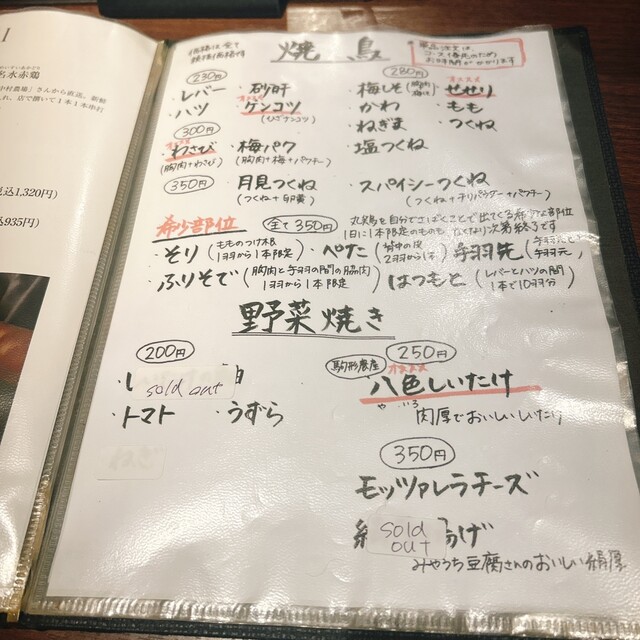 名水赤鶏
込1,320円)
込935円)
価格は全て
税抜価格です
焼 鳥
単品注文は、
コース優先のため
お時間がかかります
230円
・レバー ・砂肝
・ハツ ・ゲンコツ
(ひざナンコツ)
280円
・梅しそ ・せせり
・かわ ・もも
・ねぎま ・つくね
・塩つくね
オススメ
300円
・わさび ・梅パク
(胸肉+わさび) (胸肉+梅+パクチー)
350円
・月見つくね ・スパイシーつくね
(つくね+卵黄) (つくね+チリパウダー+パクチー)
希少部位 全て350円
丸鶏を自分でさばくことで出てくる希少な部位
1日に1本限定のものも、なくなり次第終了です
・そり (もものつけ根 1羽から1本限定) ・ぺた (背中の皮 2羽から1本) ・手羽先
・ふりそで (胸肉と手羽の間の脇肉 1羽から1本限定) ・はつもと (レバーとハツの間 1本で10羽分)
野菜焼き
200円
sold out
・トマト ・うずら
250円
駒形農産
オススメ
八色しいたけ
や いろ
肉厚でおいしいしいたけ
350円
モッツァレラチーズ
sold out
みやうち豆腐さんのおいしい絹厚